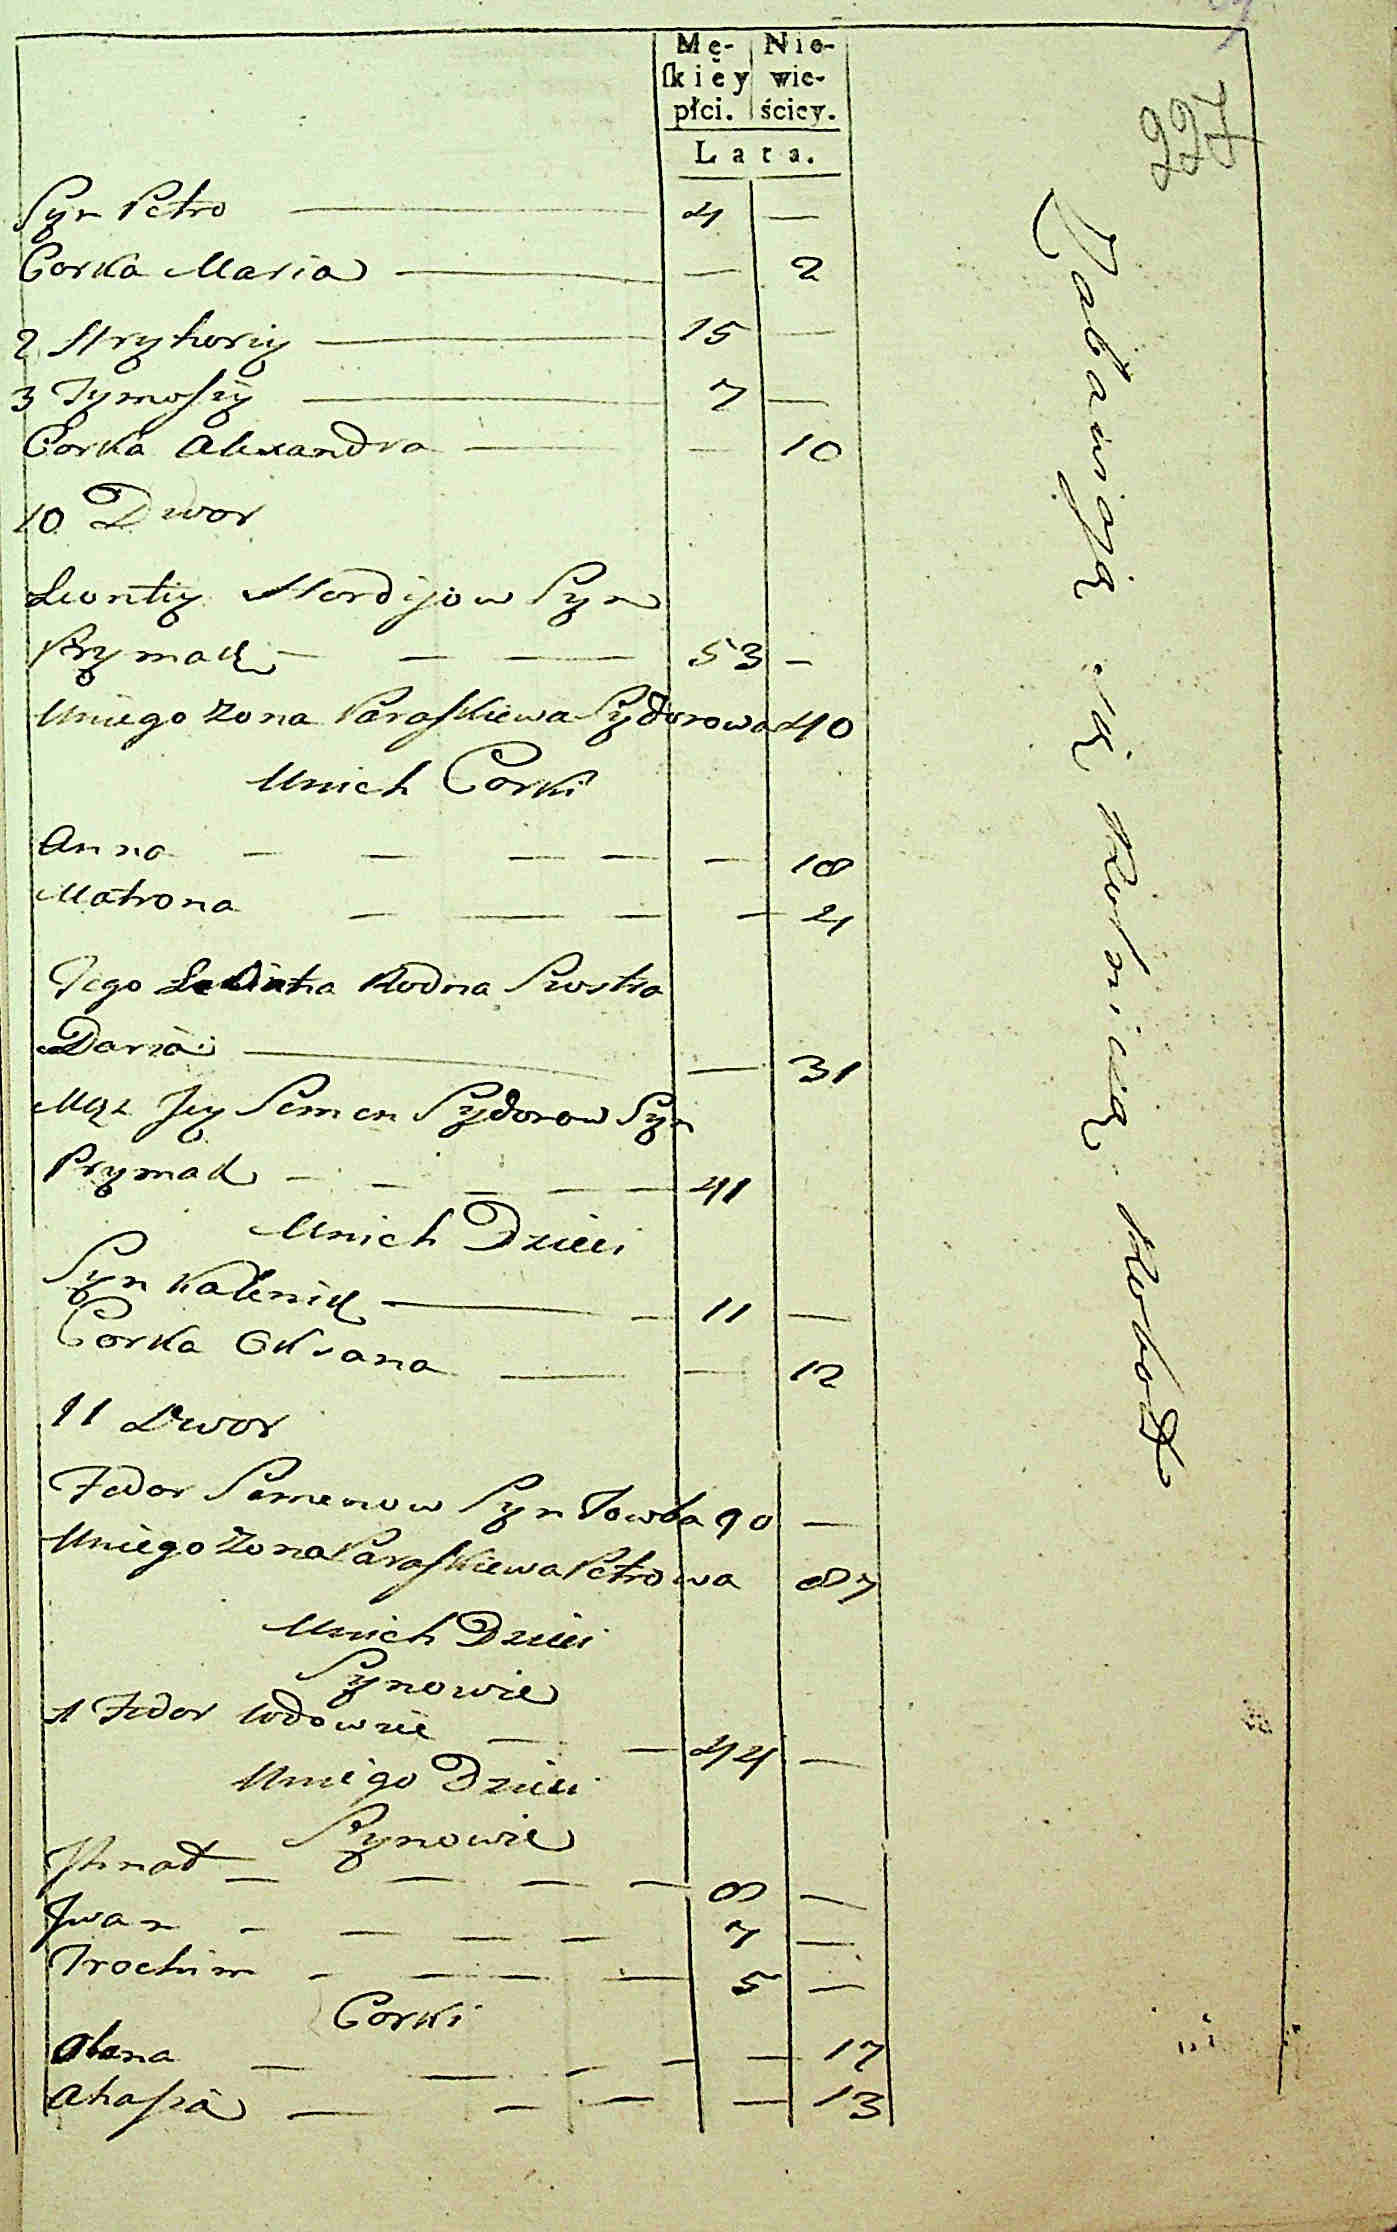 227
Mę- Nie-
skiey wie-
płci. ściey.
Lata.
Syn Petro 4 —
Corka Maria — 2
2 Hryhoriy 15 —
3 Tymofiy 7 —
Corka Alexandra — 10
10 Dwor
Leontiy Hordijow Syn
Prymak 53 —
Uniego Zona Paraskiewa Sydorowa 40
Unich Corki
Anna — 18
Matrona — 4
Jego Rodna Siostra
Daria — 31
Mąż Jey Semen Sydorow Syn
Prymak 41
Unich Dzieci
Syn Kalenik 11 —
Corka Oksana — 12
11 Dwor
Fedor Semenow Syn Towba 90 —
Uniego Zona Paraskiewa Petrowa 87
Unich Dzieci
Synowie
1 Fedor Wdowiec 44 —
Uniego Dzieci
Synowie
Ihnat 8 —
Iwan 7 —
Trochim 5 —
Corki
Olena — 17
Ahafia — 13
Zabawiają się Rolniczą Robotą